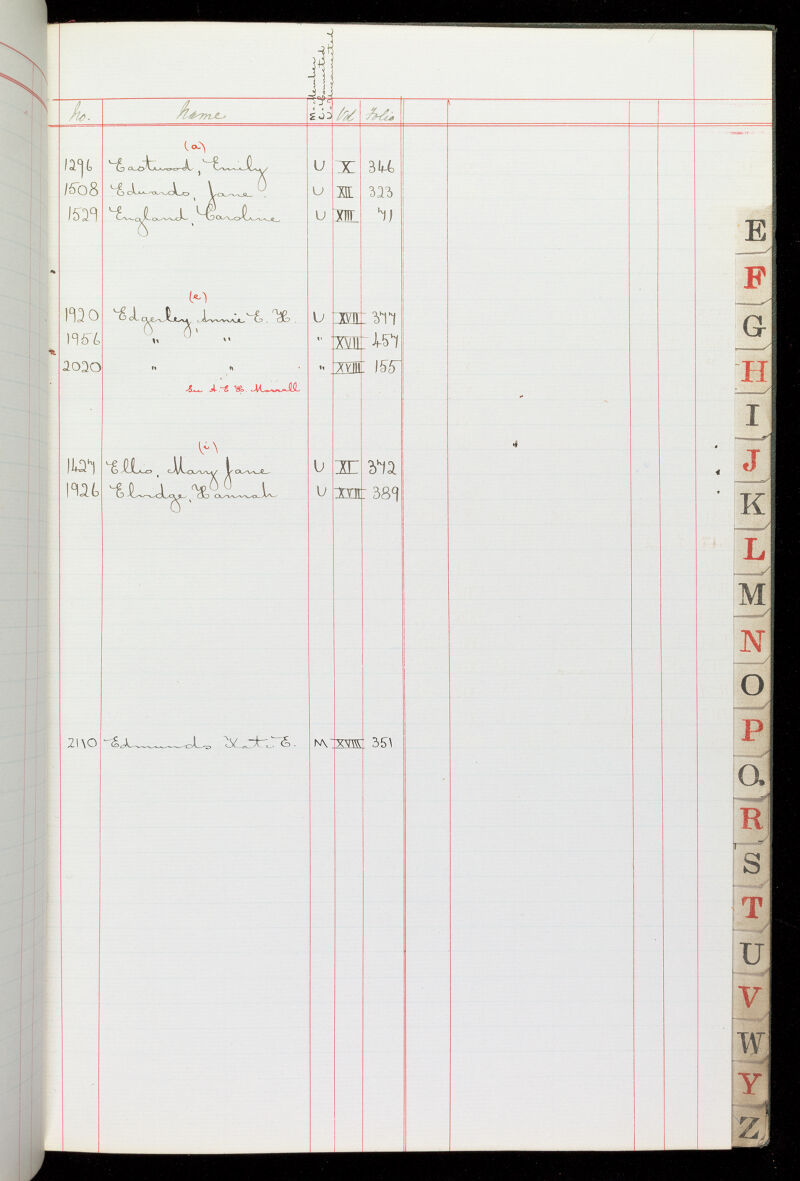 M - Member
C - Connected
U - Unconnected
No. Name Vol Folio
(a)
1296 Eastwood, Emily U X 346
1508 Edwards, Jane. U XII 323
1529 England, Caroline U XIII 71
(e)
1920 Edgerley, Annie E. H. U XVII 377
1956 " " " XVII 457
2020 " " " XVIII 155
See A. E. H. Morrall
(i)
1427 Ellis, Mary Jane U XI 372
1926 Elridge, Hannah U XVII 389
2110 Edmunds Kate E. M XVIII 351
E
F
G
H
I
J
K
L
M
N
O
P
Q.
R
S
T
U
V
W
Y
Z